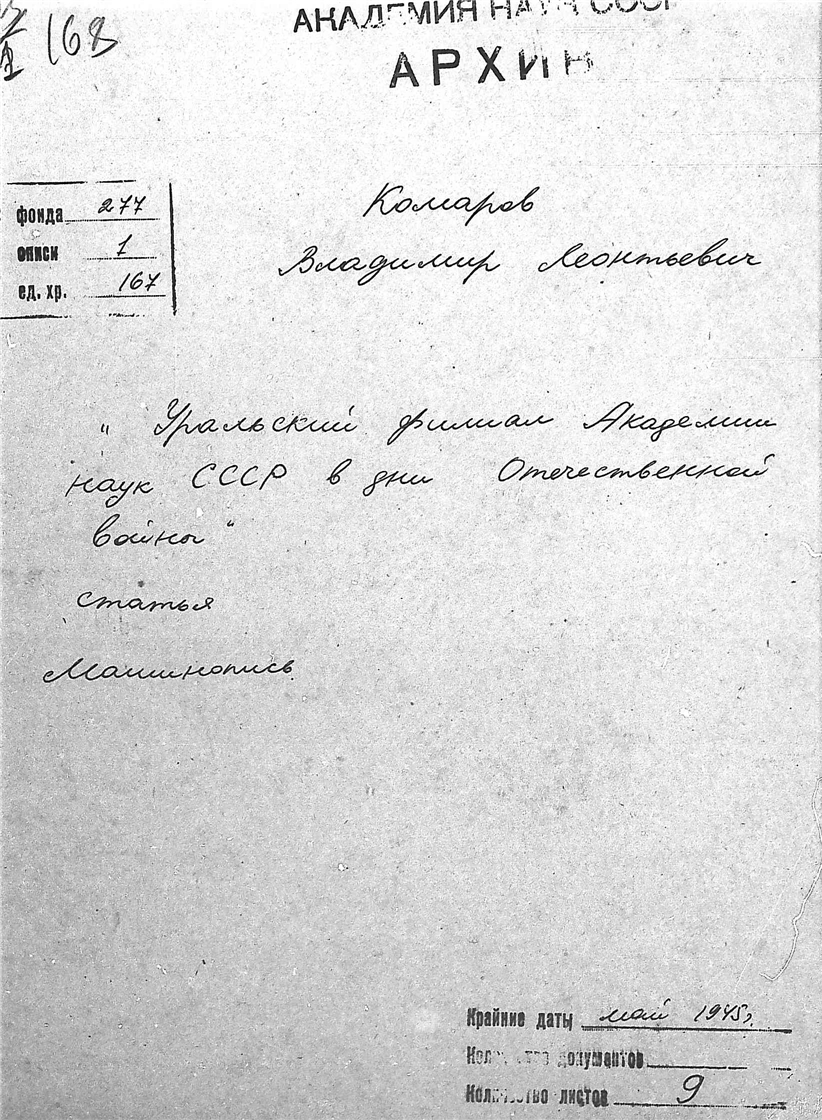 168
АКАДЕМИЯ НАУК СССР
АРХИВ
фонда 277
описи 1
ед. хр. 167
Комаров
Владимир Леонтьевич
„Уральский филиал Академии
наук СССР в дни Отечественной
войны“
статья
Машинопись
Крайние даты май 1945 г.
Количество документов
Количество листов 9